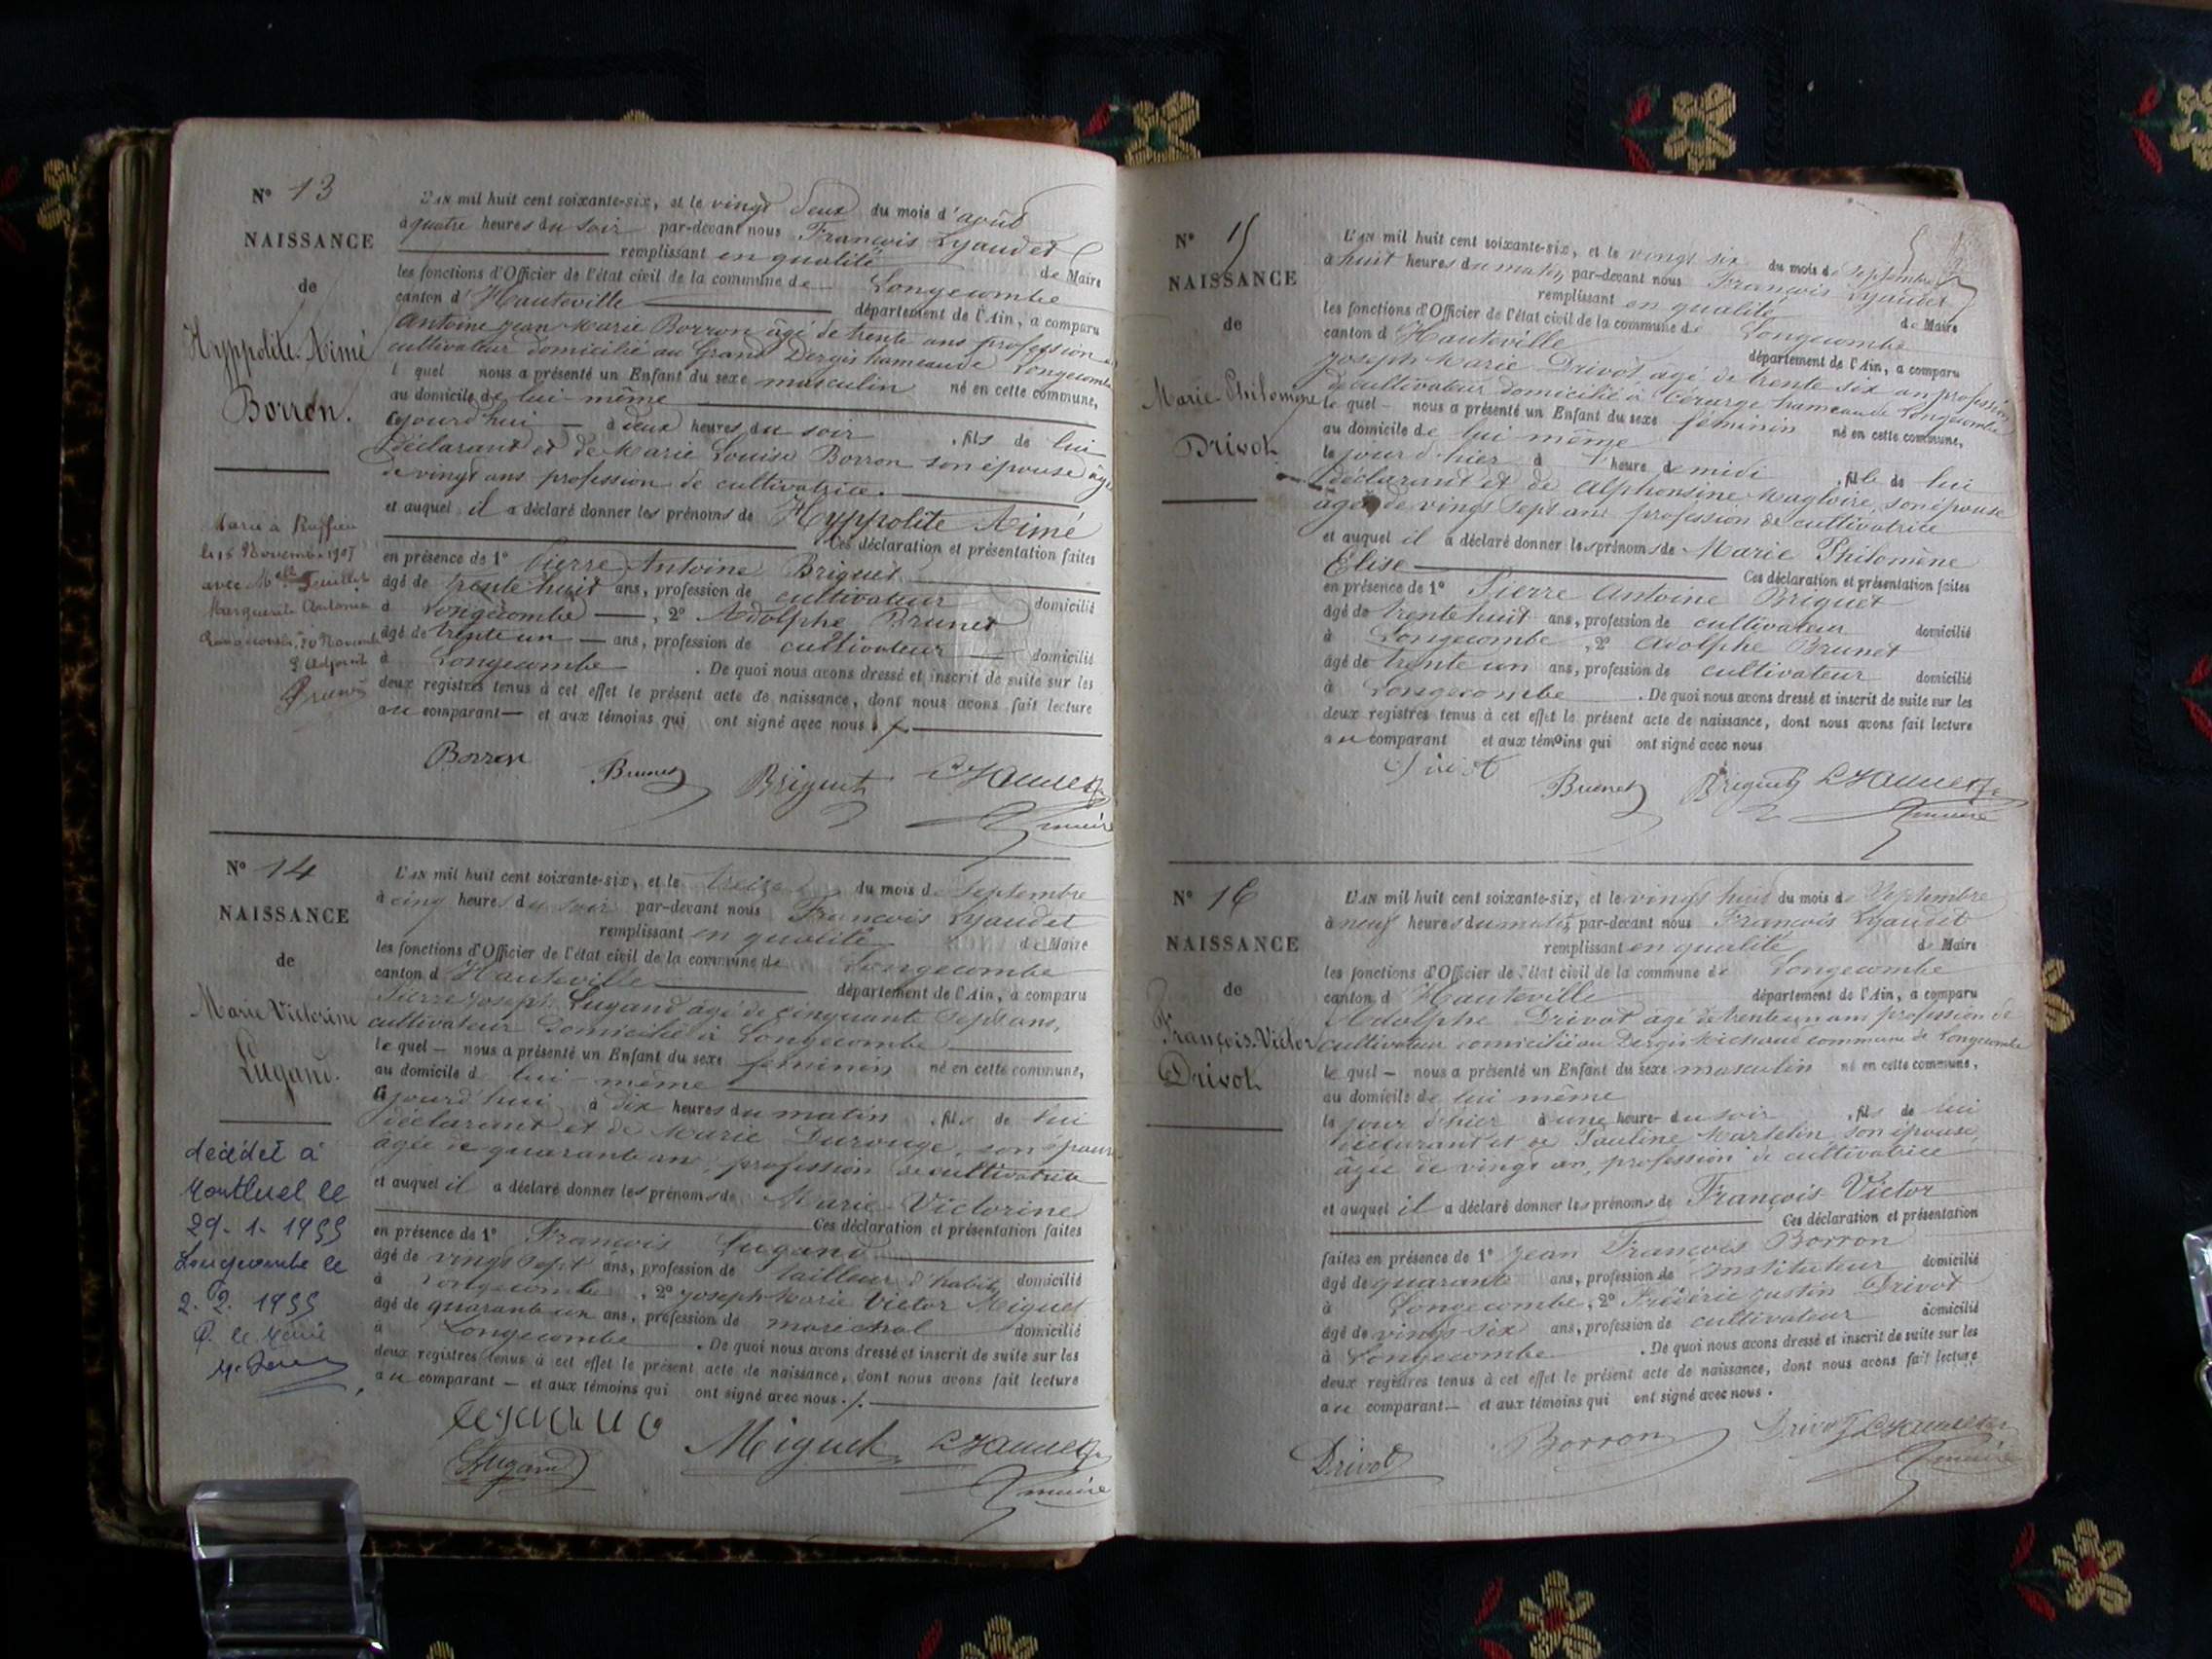 N° 13
NAISSANCE
de
Hyppolite-Aimé
Borron.
L'AN mil huit cent soixante-six, et le vingt deux du mois d'août
à quatre heures du soir par-devant nous François Lyaudet
remplissant en qualité de Maire
les fonctions d'Officier de l'état civil de la commune de Longecombe
canton d'Hauteville département de l'Ain, a comparu
Antoine Jean Marie Borron âgé de trente ans profession de
cultivateur domicilié au Grand Dergis hameau de Longecombe
lequel nous a présenté un Enfant du sexe masculin né en cette commune,
au domicile de lui-même
cejourd'hui à deux heures du soir, fils de lui
déclarant et de Marie Louise Borron son épouse âgée
de vingt ans profession de cultivatrice.
et auquel il a déclaré donner les prénoms de Hyppolite Aimé
Ces déclaration et présentation faites
en présence de 1° Pierre Antoine Briguet
âgé de trente huit ans, profession de cultivateur domicilié
à Longecombe, 2° Adolphe Brunet
âgé de trente un ans, profession de cultivateur domicilié
à Longecombe. De quoi nous avons dressé et inscrit de suite sur les
deux registres tenus à cet effet le présent acte de naissance, dont nous avons fait lecture
au comparant et aux témoins qui ont signé avec nous.
Marié à Ruffieu
le 15 Novembre 1907
avec Mlle
Marguerite Antonia
Longecombe, 20 Novembre
L'Adjoint
Borron Brunet Briguet Lyaudet
maire
N° 14
NAISSANCE
de
Marie Victorine
Lugand.
L'AN mil huit cent soixante-six, et le treize du mois de Septembre
à cinq heures du soir par-devant nous François Lyaudet
remplissant en qualité de Maire
les fonctions d'Officier de l'état civil de la commune de Longecombe
canton d'Hauteville département de l'Ain, a comparu
Pierre Joseph Lugand âgé de cinquante sept ans,
cultivateur domicilié à Longecombe
lequel nous a présenté un Enfant du sexe féminin né en cette commune,
au domicile de lui-même
cejourd'hui à dix heures du matin, fille de lui
déclarant et de Marie Durouge, son épouse
âgée de quarante ans, profession de cultivatrice
et auquel il a déclaré donner les prénoms de Marie-Victorine
Ces déclaration et présentation faites
en présence de 1° François Lugand
âgé de vingt sept ans, profession de tailleur d'habits domicilié
à Longecombe, 2° Joseph-Marie Victor Miguet
âgé de quarante un ans, profession de maréchal domicilié
à Longecombe. De quoi nous avons dressé et inscrit de suite sur les
deux registres tenus à cet effet le présent acte de naissance, dont nous avons fait lecture
au comparant et aux témoins qui ont signé avec nous.
décédée à
Montluel le
29-1-1955
Longecombe le
2.2.1955
P. le Maire
Lugand Miguet Lyaudet
maire
N° 15
NAISSANCE
de
Marie-Philomène
Drivot.
L'AN mil huit cent soixante-six, et le vingt six du mois de Septembre
à huit heures du matin, par-devant nous François Lyaudet
remplissant en qualité de Maire
les fonctions d'Officier de l'état civil de la commune de Longecombe
canton d'Hauteville département de l'Ain, a comparu
Joseph-Marie Drivot, âgé de trente six ans profession
de cultivateur domicilié à hameau de Longecombe
lequel nous a présenté un Enfant du sexe féminin né en cette commune,
au domicile de lui même
le jour d'hier à 1 heure de midi, fille de lui
déclarant et de Alphonsine Magloire, son épouse
agée de vingt sept ans profession de cultivatrice
et auquel il a déclaré donner les prénoms de Marie Philomène
Elise Ces déclaration et présentation faites
en présence de 1° Pierre Antoine Briguet
âgé de trente huit ans, profession de cultivateur domicilié
à Longecombe, 2° Adolphe Brunet
âgé de trente un ans, profession de cultivateur domicilié
à Longecombe. De quoi nous avons dressé et inscrit de suite sur les
deux registres tenus à cet effet le présent acte de naissance, dont nous avons fait lecture
au comparant et aux témoins qui ont signé avec nous
Drivot Brunet Briguet Lyaudet
maire
N° 16
NAISSANCE
de
François-Victor
Drivot.
L'AN mil huit cent soixante-six, et le vingt huit du mois de Septembre
à neuf heures du matin, par-devant nous François Lyaudet
remplissant en qualité de Maire
les fonctions d'Officier de l'état civil de la commune de Longecombe
canton d'Hauteville département de l'Ain, a comparu
Adolphe Drivot âgé de trente un ans profession de
cultivateur domicilié au Dergis Michaud commune de Longecombe
lequel nous a présenté un Enfant du sexe masculin né en cette commune,
au domicile de lui même
le jour d'hier à une heure du soir, fils de lui
déclarant et de Pauline Martelin, son épouse,
âgée de vingt an, profession de cultivatrice
et auquel il a déclaré donner les prénoms de François-Victor
Ces déclaration et présentation
faites en présence de 1° Jean François Borron
âgé de quarante ans, profession de instituteur domicilié
à Longecombe, 2° Frédéric Justin Drivot
âgé de vingt-six ans, profession de cultivateur domicilié
à Longecombe. De quoi nous avons dressé et inscrit de suite sur les
deux registres tenus à cet effet le présent acte de naissance, dont nous avons fait lecture
au comparant et aux témoins qui ont signé avec nous.
Drivot Borron Drivot Lyaudet
maire